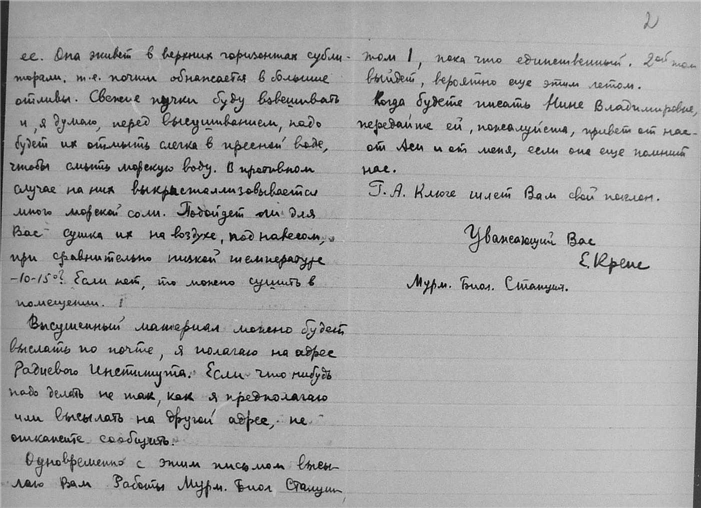 2
ее. Она живет в верхних горизонтах субли-
торали, т.е. почти обнажается в большие
отливы. Свежие пучки буду взвешивать
и, я думаю, перед высушиванием, надо
будет их отмыть слегка в пресной воде,
чтобы смыть морскую воду. В противном
случае на них выкристаллизовывается
много морской соли. Подойдет ли для
Вас сушка их на воздухе, под навесом,
при сравнительно низкой температуре
-10-15°? Если нет, то можно сушить в
помещении.
Высушенный материал можно будет
выслать по почте, я полагаю на адрес
Радиевого Института. Если что нибудь
надо делать не так, как я предполагаю
или высылать на другой адрес, не
откажите сообщить.
Одновременно с этим письмом высы-
лаю Вам Работы Мурм. Биол Станции,
том 1, пока что единственный. 2ой том
выйдет, вероятно еще этим летом.
Когда будете писать Нине Владимировне,
передайте ей, пожалуйста, привет от нас-
от Аси и от меня, если она еще помнит
нас.
Г. А. Клюге шлет Вам свой поклон.
Уважающий Вас
Е. Крепс
Мурм. Биол. Станция.